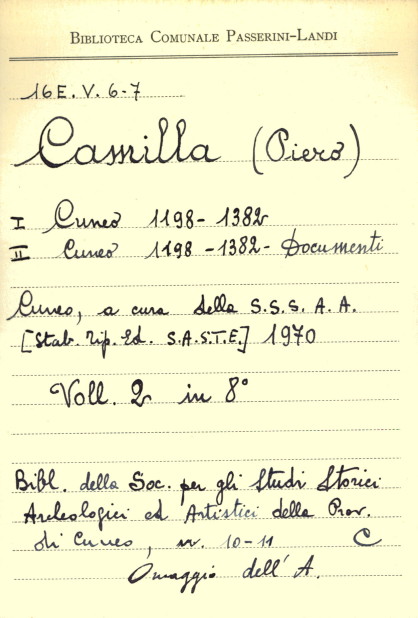 BIBLIOTECA COMUNALE PASSERINI-LANDI
16E. V. 6-7
Camilla (Piero)
I Cuneo 1198-1382
II Cuneo 1198-1382- Documenti
Cuneo, a cura della S.S.S. A. A.
[Stab. Tip. Ed. S.A.S.T.E.] 1970
Voll. 2 in 8°
Bibl. della Soc. per gli Studi Storici
Archeologici ed Artistici della Prov.
di Cuneo, nr. 10-11 C
Omaggio dell'A.